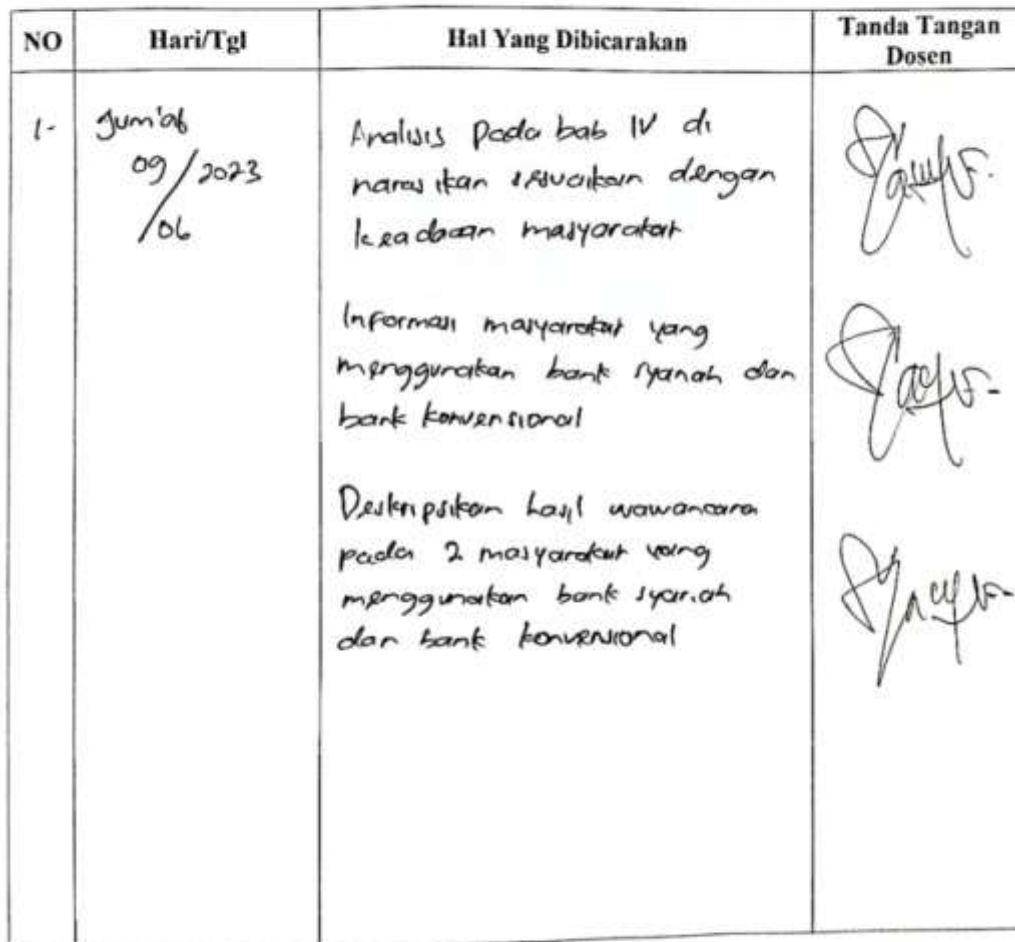 NO Hari/Tgl Hal Yang Dibicarakan Tanda Tangan
Dosen
1- Jum'at Analisis pada bab IV di
09/2023 narasikan sesuaikan dengan
/06 keadaan masyarakat
Informasi masyarakat yang
menggunakan bank syariah dan
bank konvensional
Deskripsikan hasil wawancara
pada 2 masyarakat yang
menggunakan bank syariah
dan bank konvensional